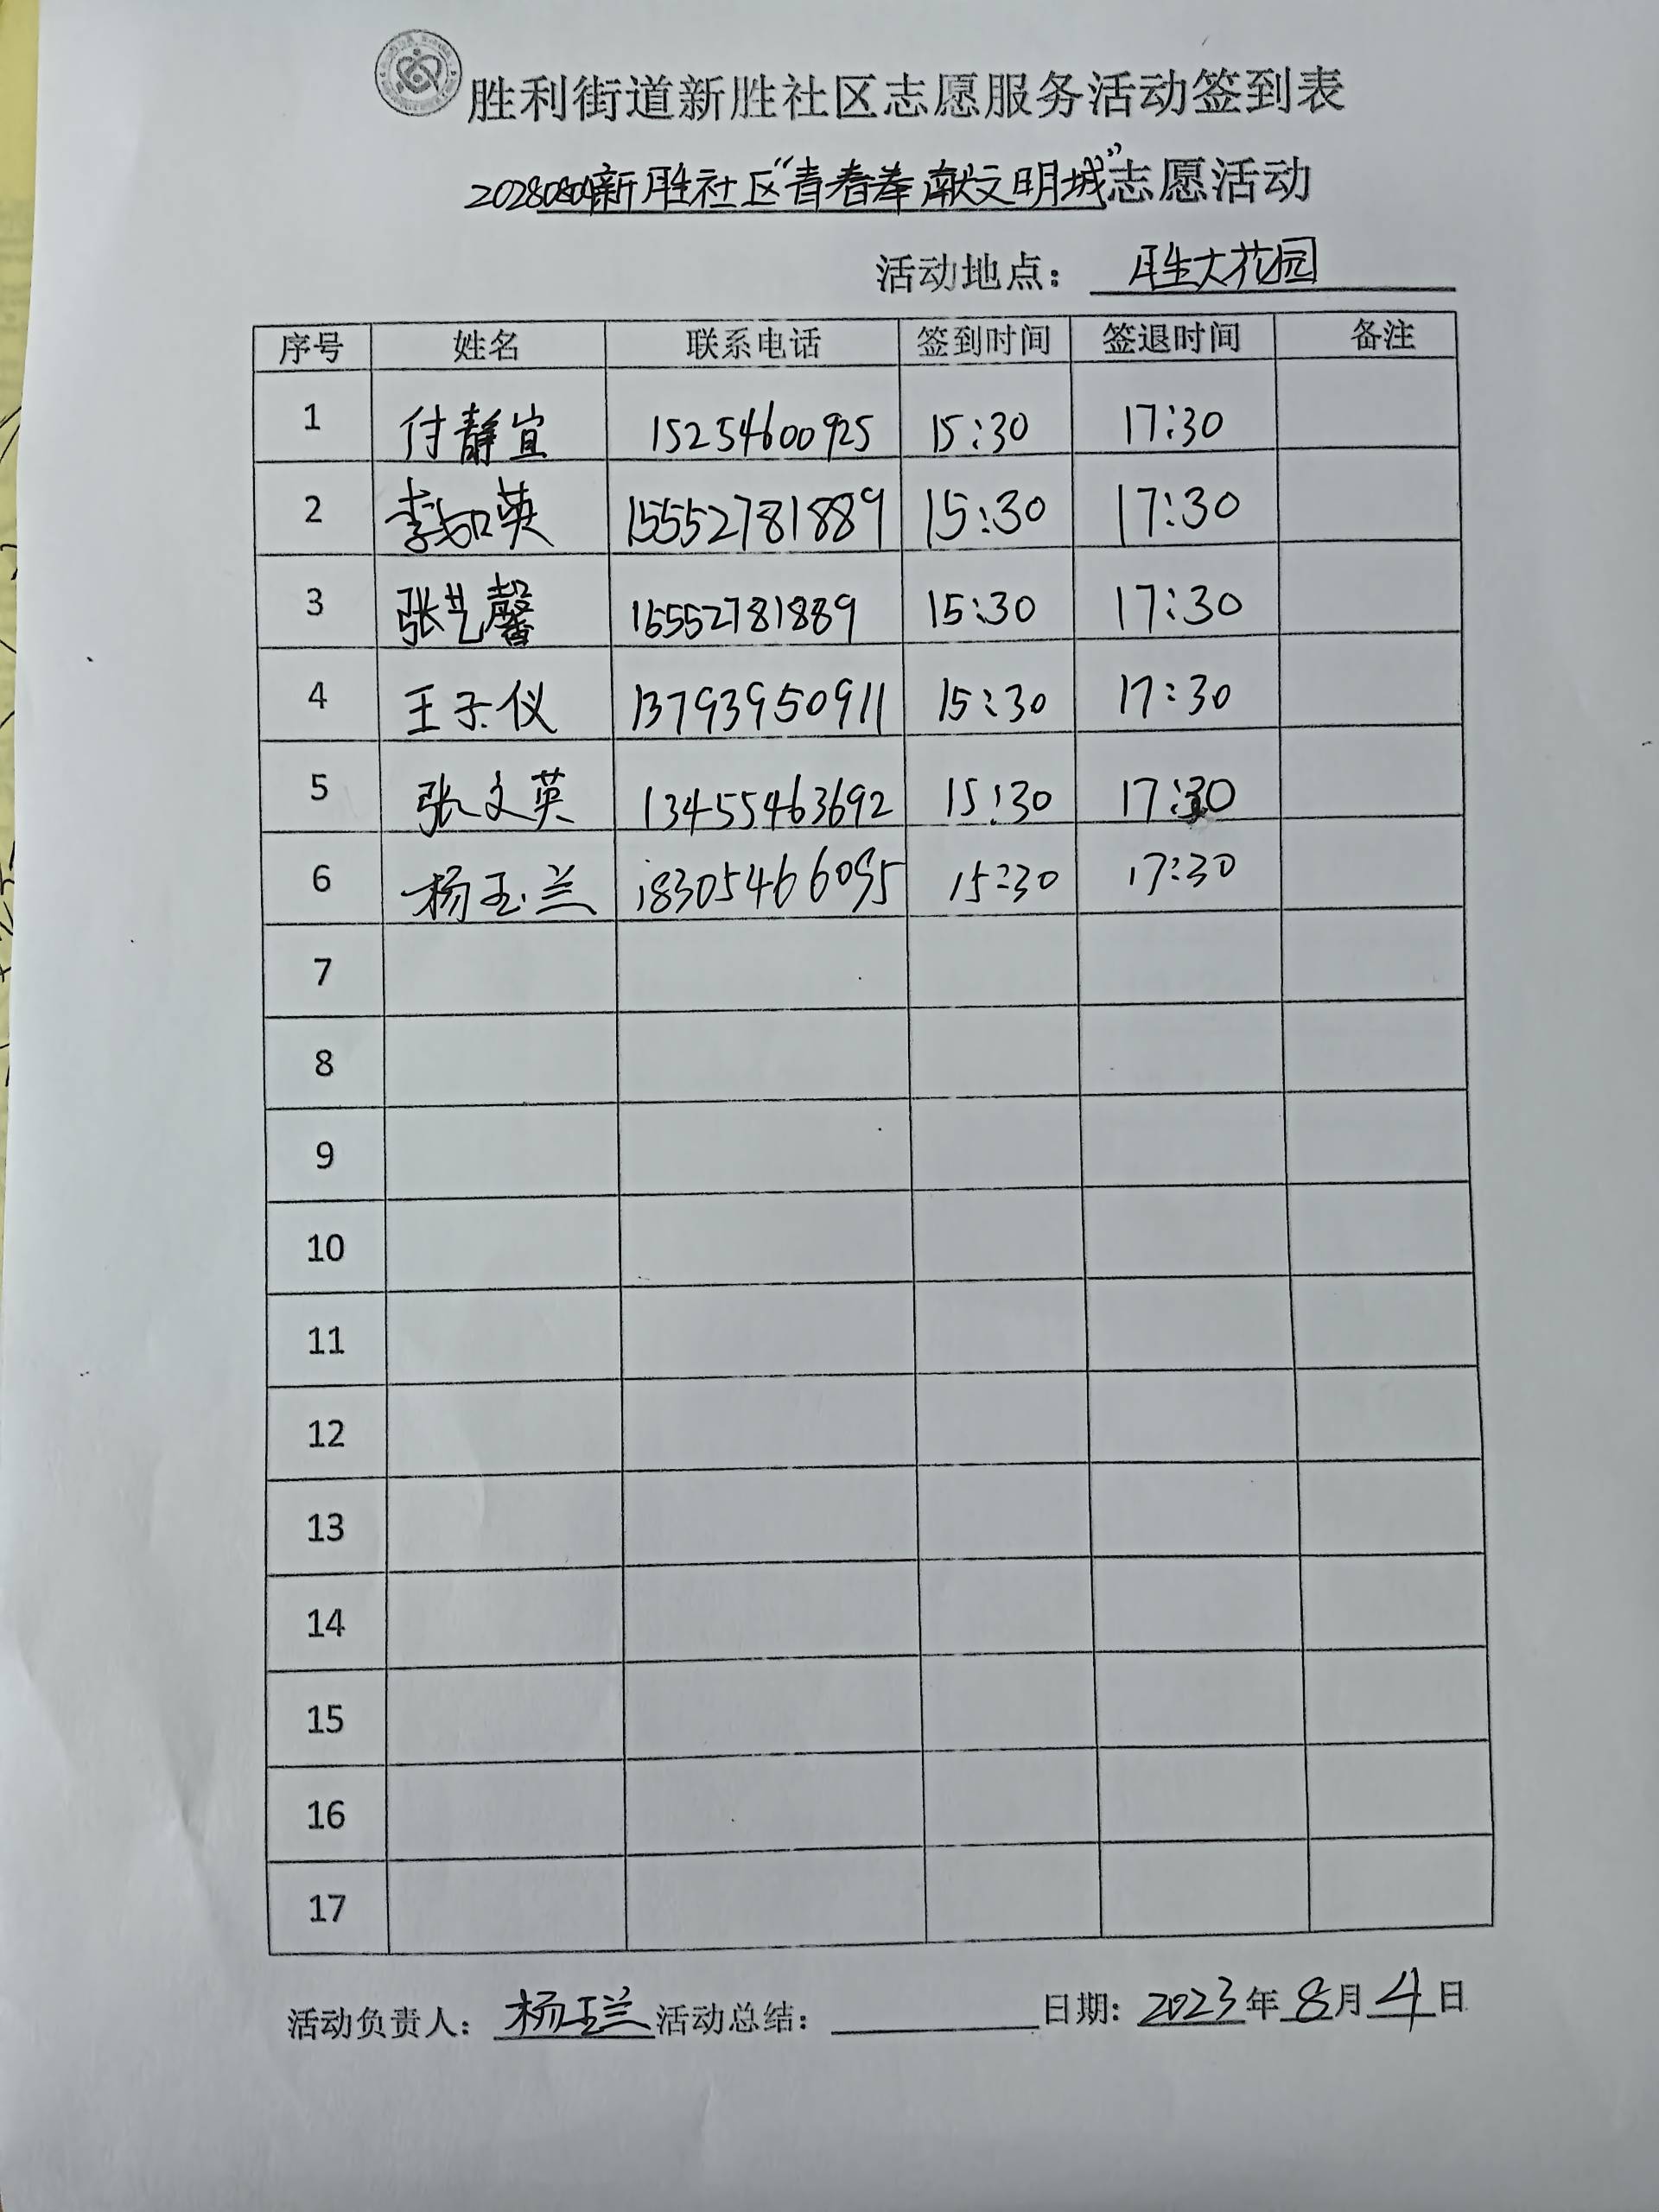 胜利街道新胜社区志愿服务活动签到表
20230804新胜社区“青春奉献文明城”志愿活动
活动地点： 胜大花园
序号 姓名 联系电话 签到时间 签退时间 备注
1 付静宜 15254600925 15:30 17:30
2 李如英 15552781889 15:30 17:30
3 张艺馨 15552781889 15:30 17:30
4 王子仪 13793950911 15:30 17:30
5 张文英 13455463692 15:30 17:30
6 杨玉兰 18305466095 15:30 17:30
7
8
9
10
11
12
13
14
15
16
17
活动负责人： 杨玉兰 活动总结： 日期: 2023年8月4日